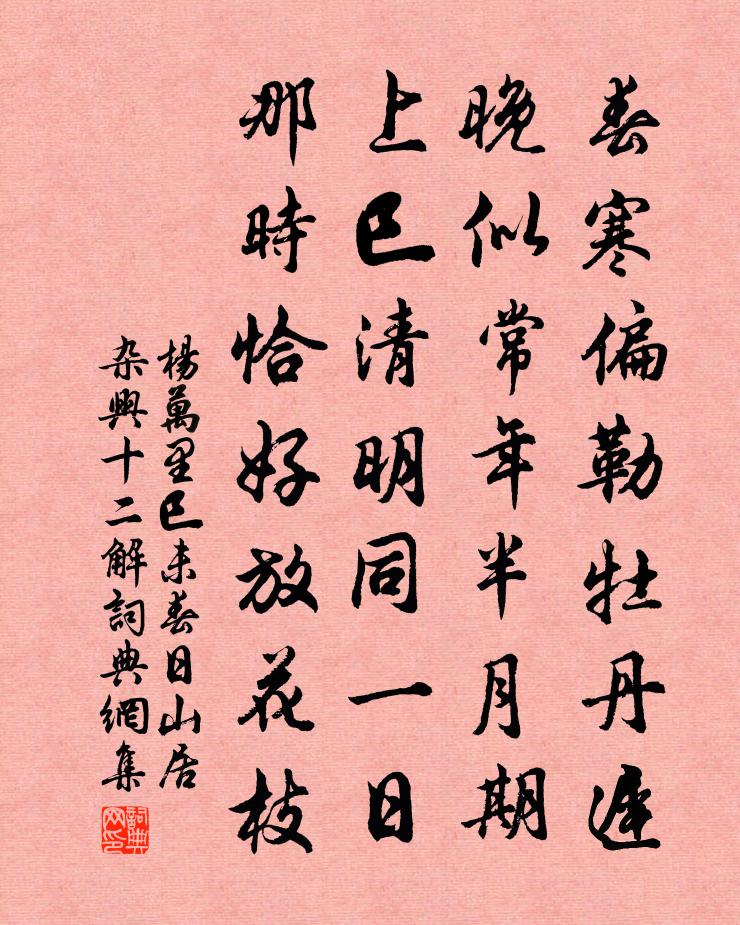 春寒偏勒牡丹遲
晚似常年半月期
上巳清明同一日
那時恰好放花枝
楊萬里巳未春日山居
杂興十二解詞典網集
詞典网印